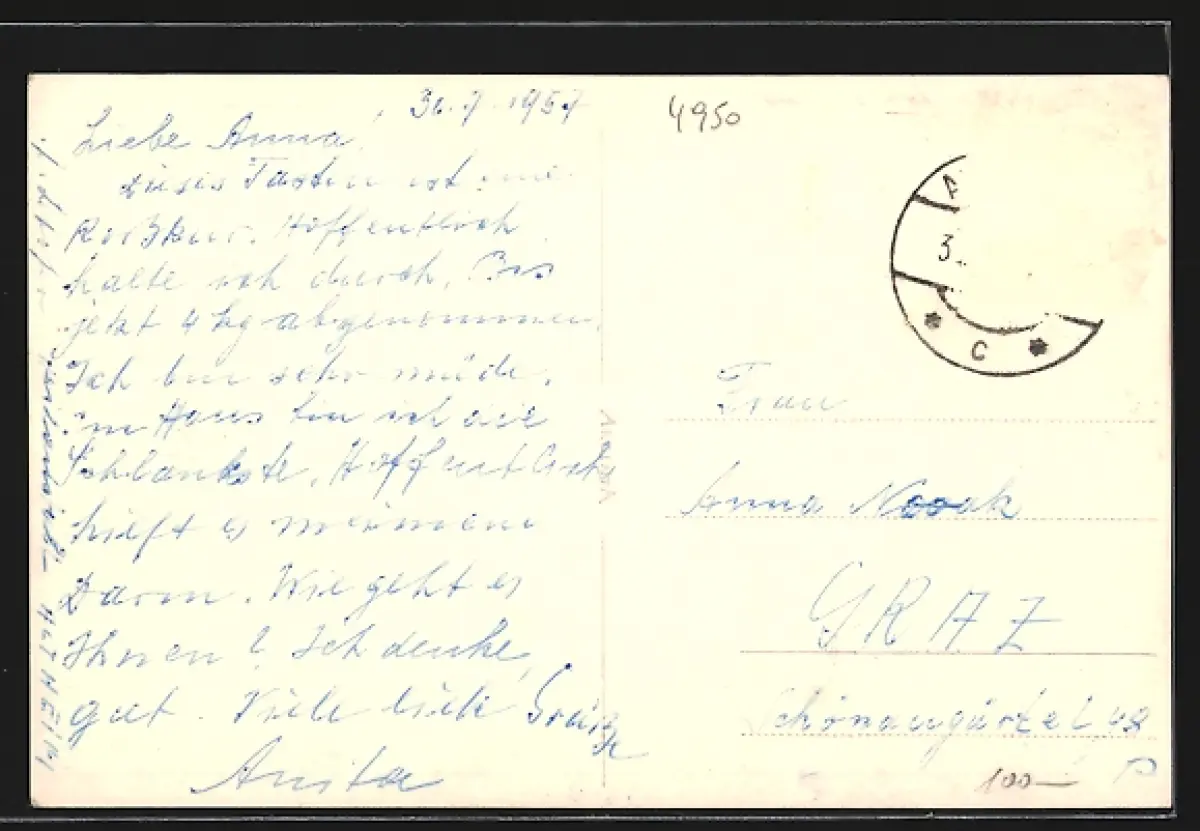 1957
Liebe Anna,
dieses Fasten ist eine
Roßkur. Hoffentlich
halte ich durch. Bis
jetzt 4 kg abgenommen.
Ich bin sehr müde.
im Haus bin ich die
Schlankste. Hoffentlich
hilft es meinem
Darm. Wie geht es
Ihnen? Ich denke,
gut. Viele liebe Grüße
Anita
4950
3.
C
Frau
Anna Novak
GRAZ
Schönaugürtel 48
100—